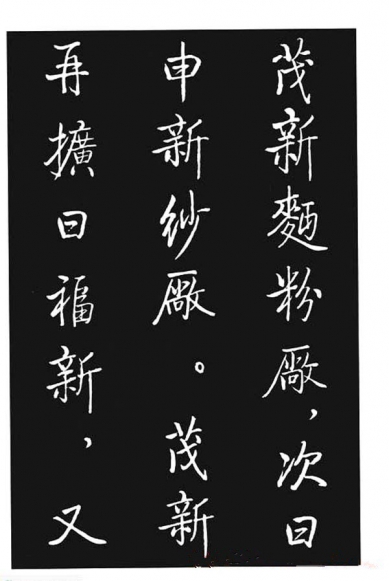 茂新麵粉厰，次曰
申新紗厰。茂新
再擴曰福新，又